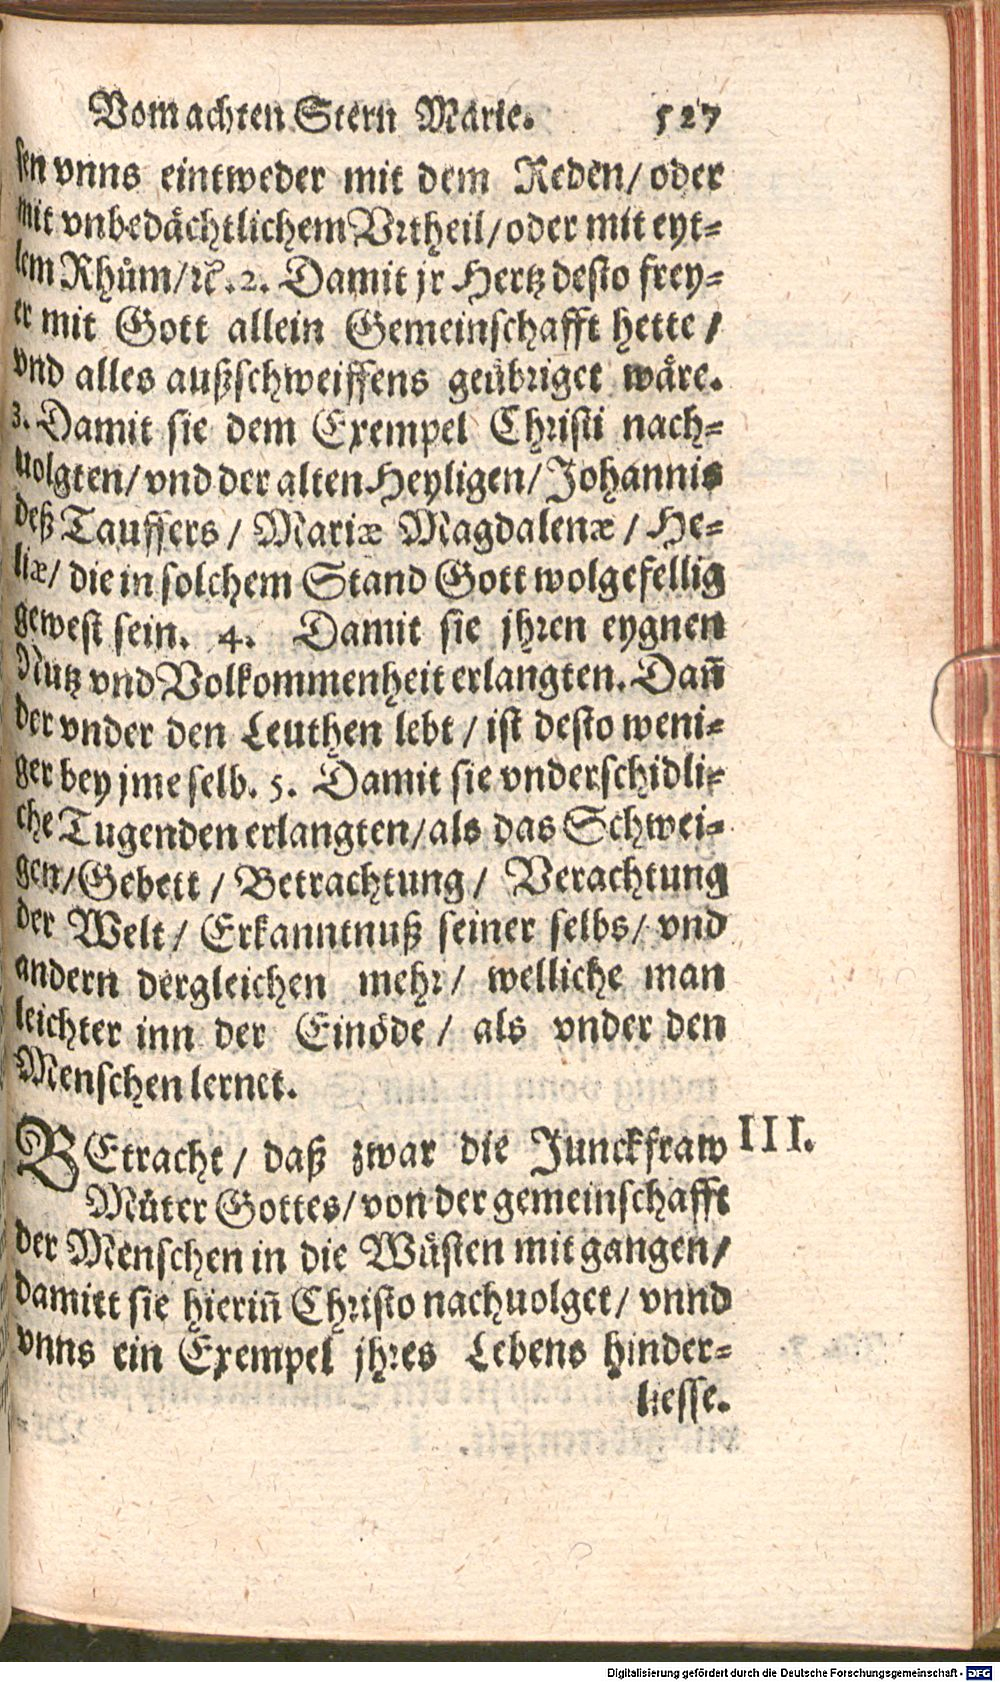 Vom achten Stern Marie. 527
sen vnns eintweder mit dem Reden/ oder
mit vnbedächtlichem Vrtheil/ oder mit eyt-
lem Rhům/ ꝛc. 2. Damit jr Hertz desto frey-
er mit Gott allein Gemeinschafft hette/
vnd alles außschweiffens geübriget wäre.
3. Damit sie dem Exempel Christi nach-
uolgten/ vnd der alten Heyligen/ Johannis
deß Tauffers/ Mariæ Magdalenæ/ He-
liæ/ die in solchem Stand Gott wolgefellig
gewest sein. 4. Damit sie jhren eygnen
Nutz vnd Volkommenheit erlangten. Dañ
der vnder den Leuthen lebt/ ist desto weni-
ger bey jme selb. 5. Damit sie vnderschidli-
che Tugenden erlangten/ als das Schwei-
gen/ Gebett/ Betrachtung/ Verachtung
der Welt/ Erkanntnuß seiner selbs/ vnd
andern dergleichen mehr/ welliche man
leichter inn der Einöde/ als vnder den
Menschen lernet.
BEtracht/ daß zwar die Junckfraw III.
Můter Gottes/ von der gemeinschafft
der Menschen in die Wüsten mit gangen/
damitt sie hieriñ Christo nachuolget/ vnnd
vnns ein Exempel jhres Lebens hinder-
liesse.
Digitalisierung gefördert durch die Deutsche Forschungsgemeinschaft - DFG